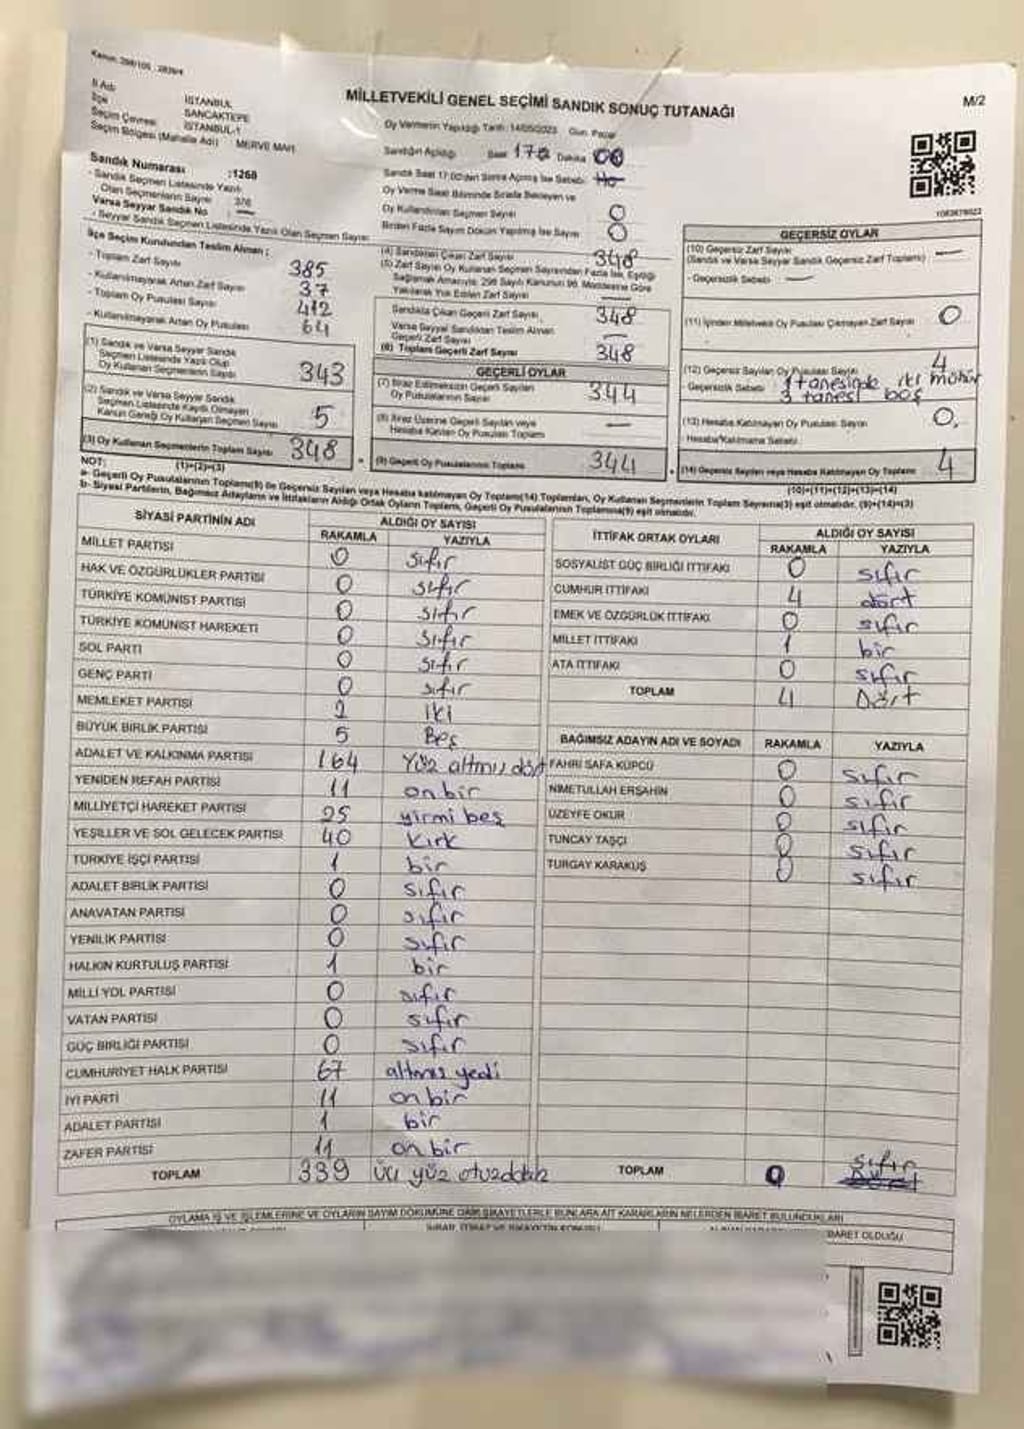 Kanun: 298/105 - 2839/4
M/2
MİLLETVEKİLİ GENEL SEÇİMİ SANDIK SONUÇ TUTANAĞI
İl Adı İSTANBUL
İlçe SANCAKTEPE
Seçim Çevresi İSTANBUL-1
Seçim Bölgesi (Mahalle Adı) MERVE MAH.
Sandık Numarası :1268
- Sandık Seçmen Listesinde Yazılı
Olan Seçmenlerin Sayısı 376
Varsa Seyyar Sandık No : —
- Seyyar Sandık Seçmen Listesinde Yazılı Olan Seçmen Sayısı
Oy Vermenin Yapıldığı Tarih: 14/05/2023 Gün: Pazar
Sandığın Açıldığı Saat 17 Dakika 00
Sandık Saat 17:00'den Sonra Açılmış İse Sebebi:
Oy Verme Saati Bitiminde Sırada Bekleyen ve
Oy Kullandırılan Seçmen Sayısı 0
Birden Fazla Sayım Döküm Yapılmış İse Sayısı 0
1083678022
İlçe Seçim Kurulundan Teslim Alınan ;
- Toplam Zarf Sayısı 385
- Kullanılmayarak Artan Zarf Sayısı 37
- Toplam Oy Pusulası Sayısı 412
- Kullanılmayarak Artan Oy Pusulası 64
(1) Sandık ve Varsa Seyyar Sandık
Seçmen Listesinde Yazılı Olup
Oy Kullanan Seçmenlerin Sayısı 343
(2) Sandık ve Varsa Seyyar Sandık
Seçmen Listesinde Kayıtlı Olmayan
Kanun Gereği Oy Kullanan Seçmen Sayısı 5
(3) Oy Kullanan Seçmenlerin Toplam Sayısı 348
(1)+(2)=(3)
(4) Sandıktan Çıkan Zarf Sayısı 348
(5) Zarf Sayısı Oy Kullanan Seçmen Sayısından Fazla İse, Eşitliği
Sağlamak Amacıyla; 298 Sayılı Kanunun 98. Maddesine Göre
Yakılarak Yok Edilen Zarf Sayısı —
Sandıkta Çıkan Geçerli Zarf Sayısı 348
Varsa Seyyar Sandıktan Teslim Alınan
Geçerli Zarf Sayısı —
(6) Toplam Geçerli Zarf Sayısı 348
GEÇERLİ OYLAR
(7) İtiraz Edilmeksizin Geçerli Sayılan
Oy Pusulalarının Sayısı 344
(8) İtiraz Üzerine Geçerli Sayılan veya
Hesaba Katılan Oy Pusulası Toplamı —
(9) Geçerli Oy Pusulalarının Toplamı 344
GEÇERSİZ OYLAR
(10) Geçersiz Zarf Sayısı
(Sandık ve Varsa Seyyar Sandık Geçersiz Zarf Toplamı) —
- Geçersizlik Sebebi : —
(11) İçinden Milletvekili Oy Pusulası Çıkmayan Zarf Sayısı 0
(12) Geçersiz Sayılan Oy Pusulası Sayısı 4
Geçersizlik Sebebi : 1 tanesinde iki mühür
3 tanesi boş
(13) Hesaba Katılmayan Oy Pusulası Sayısı 0.
- Hesaba Katılmama Sebebi :
(14) Geçersiz Sayılan veya Hesaba Katılmayan Oy Toplamı 4
(10)+(11)+(12)+(13)=(14)
NOT:
a- Geçerli Oy Pusulalarının Toplamı(9) ile Geçersiz Sayılan veya Hesaba katılmayan Oy Toplamı(14) Toplamları, Oy Kullanan Seçmenlerin Toplam Sayısına(3) eşit olmalıdır. (9)+(14)=(3)
b- Siyasi Partilerin, Bağımsız Adayların ve İttifakların Aldığı Ortak Oyların Toplamı, Geçerli Oy Pusulalarının Toplamına(9) eşit olmalıdır.
SİYASİ PARTİNİN ADI ALDIĞI OY SAYISI
RAKAMLA YAZIYLA
MİLLET PARTİSİ 0 sıfır
HAK VE ÖZGÜRLÜKLER PARTİSİ 0 sıfır
TÜRKİYE KOMÜNİST PARTİSİ 0 sıfır
TÜRKİYE KOMÜNİST HAREKETİ 0 sıfır
SOL PARTİ 0 sıfır
GENÇ PARTİ 0 sıfır
MEMLEKET PARTİSİ 2 iki
BÜYÜK BİRLİK PARTİSİ 5 Beş
ADALET VE KALKINMA PARTİSİ 164 Yüz altmış dört
YENİDEN REFAH PARTİSİ 11 on bir
MİLLİYETÇİ HAREKET PARTİSİ 25 yirmi beş
YEŞİLLER VE SOL GELECEK PARTİSİ 40 kırk
TÜRKİYE İŞÇİ PARTİSİ 1 bir
ADALET BİRLİK PARTİSİ 0 sıfır
ANAVATAN PARTİSİ 0 sıfır
YENİLİK PARTİSİ 0 sıfır
HALKIN KURTULUŞ PARTİSİ 1 bir
MİLLİ YOL PARTİSİ 0 sıfır
VATAN PARTİSİ 0 sıfır
GÜÇ BİRLİĞİ PARTİSİ 0 sıfır
CUMHURİYET HALK PARTİSİ 67 altmış yedi
İYİ PARTİ 11 on bir
ADALET PARTİSİ 1 bir
ZAFER PARTİSİ 11 on bir
TOPLAM 339 üç yüz otuzdokuz
İTTİFAK ORTAK OYLARI ALDIĞI OY SAYISI
RAKAMLA YAZIYLA
SOSYALİST GÜÇ BİRLİĞİ İTTİFAKI 0 sıfır
CUMHUR İTTİFAKI 4 dört
EMEK VE ÖZGÜRLÜK İTTİFAKI 0 sıfır
MİLLET İTTİFAKI 1 bir
ATA İTTİFAKI 0 sıfır
TOPLAM 4 Dört
BAĞIMSIZ ADAYIN ADI VE SOYADI RAKAMLA YAZIYLA
FAHRİ SAFA KÜPCÜ 0 sıfır
NİMETULLAH ERŞAHİN 0 sıfır
ÜZEYFE OKUR 0 sıfır
TUNCAY TAŞÇI 0 sıfır
TURGAY KARAKUŞ 0 sıfır
TOPLAM 0 sıfır
OYLAMA İŞ VE İŞLEMLERİNE VE OYLARIN SAYIM DÖKÜMÜNE DAİR ŞİKAYETLERLE BUNLARA AİT KARARLARIN NELERDEN İBARET BULUNDUKLARI
İBARET OLDUĞU